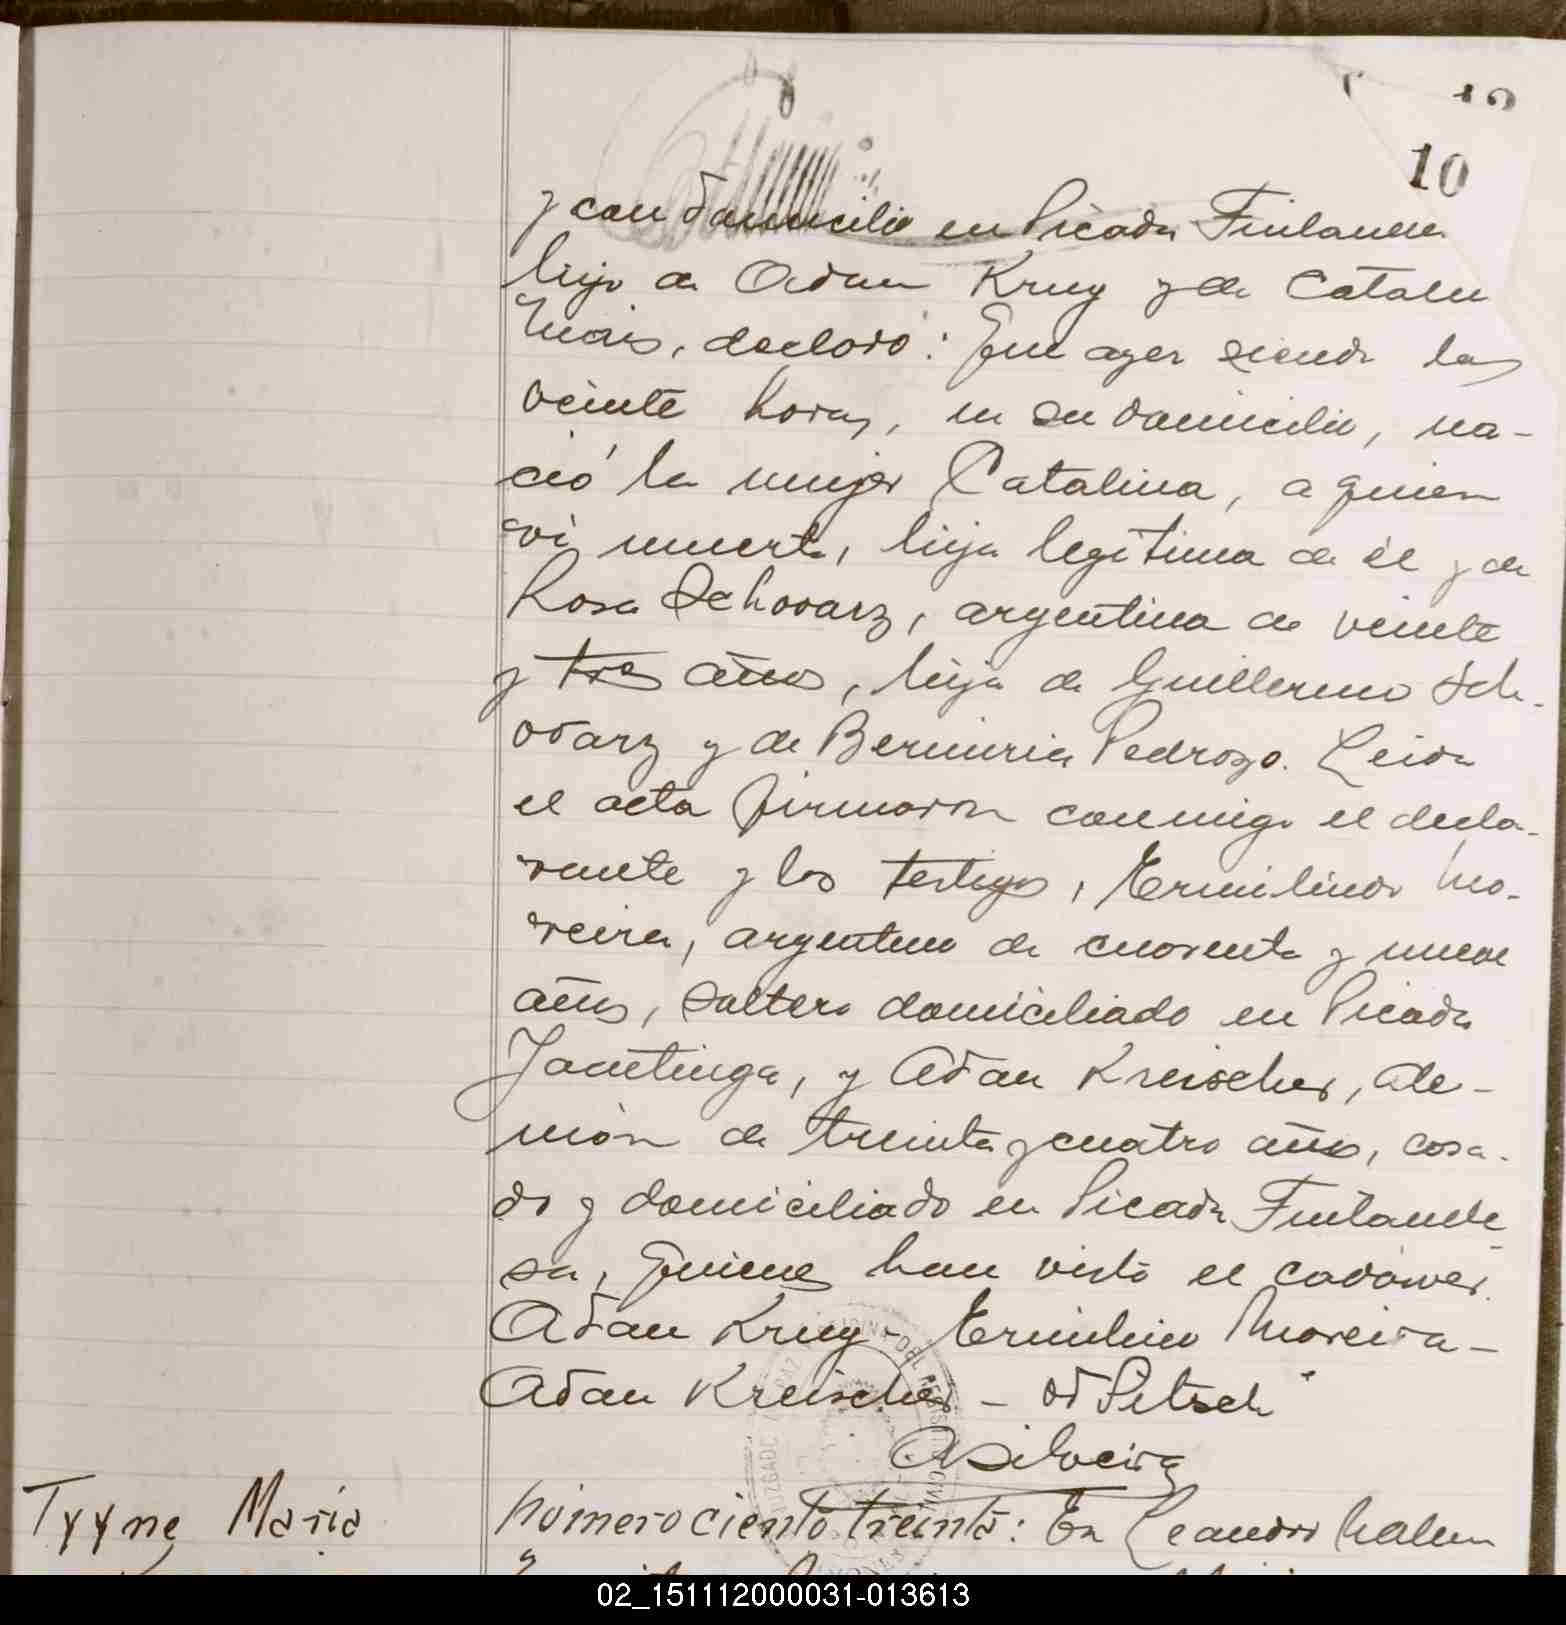 10
y con domicilio en Picada Finlandesa
hijo de Adan Krug y de Catalina
Mais, declaró: Que ayer siendo las
veinte horas, en su domicilio, na-
ció la mujer Catalina, a quien
vi muerta, hija legitima de él y de
Rosa Schwarz, argentina de veinte
y tres años, hija de Guillermo Sch-
warz y de Pedrozo. Leida
el acta firmaron conmigo el decla-
rante y los testigos, Ermilindo Mo-
reira, argentino de cuarenta y nueve
años, soltero domiciliado en Picada
Yacutinga, y Adan Kreischer, ale-
mán de treinta y cuatro años, casa-
do y domiciliado en Picada Finlande
sa, quienes han visto el cadáver.
Adan Krug - Ermilindo Moreira -
Adan Kreischer - Pitsch
ASilveira
Tyyne Maria
Número ciento treinta: En Leandro
02_151112000031-013613